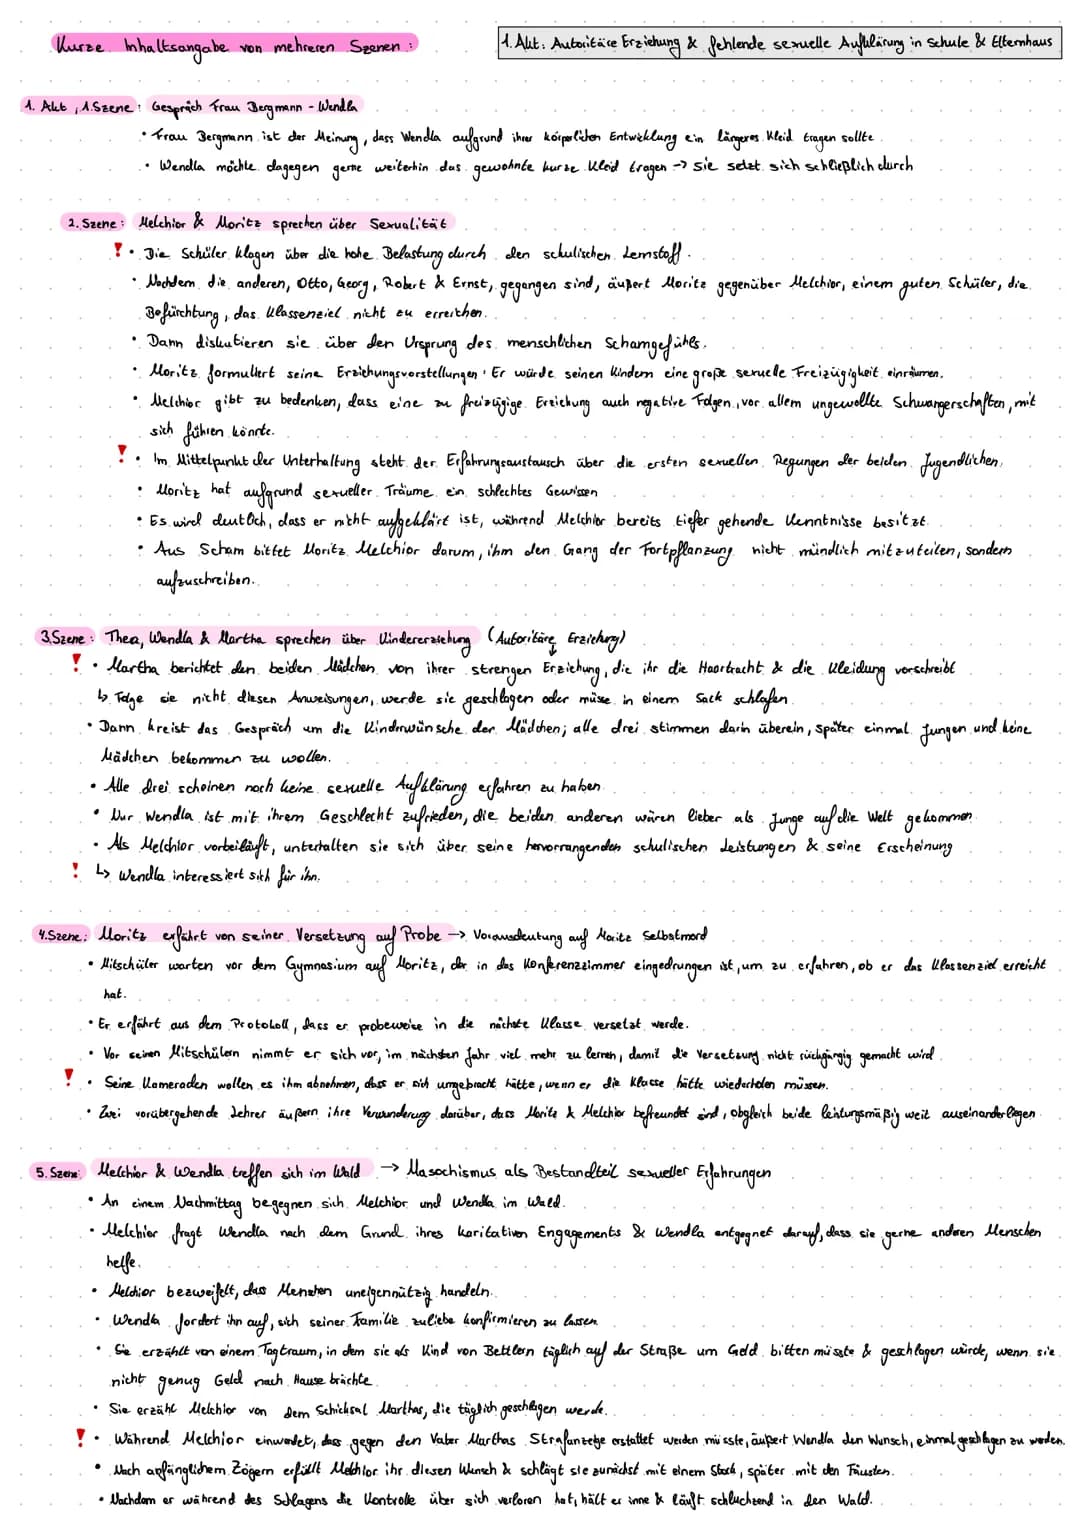 Kurze Inhaltsangabe von mehreren Szenen :
1. Akt: Autoritäre Erziehung & fehlende sexuelle Aufklärung in Schule & Elternhaus
1. Akt, 1. Szene: Gespräch Frau Bergmann - Wendla
• Frau Bergmann ist der Meinung, dass Wendla aufgrund ihrer körperlichen Entwicklung ein längeres Kleid tragen sollte
• Wendla möchte dagegen gerne weiterhin das gewohnte kurze Kleid tragen -> sie setzt sich schließlich durch
2. Szene: Melchior & Moritz sprechen über Sexualität
! • Die Schüler klagen über die hohe Belastung durch den schulischen Lernstoff.
• Nachdem die anderen, Otto, Georg, Robert & Ernst, gegangen sind, äußert Moritz gegenüber Melchior, einem guten Schüler, die
Befürchtung, das Klassenziel nicht zu erreichen.
• Dann diskutieren sie über den Ursprung des menschlichen Schamgefühls.
• Moritz formuliert seine Erziehungsvorstellungen: Er würde seinen Kindern eine große sexuelle Freizügigkeit einräumen.
• Melchior gibt zu bedenken, dass eine zu freizügige Erziehung auch negative Folgen, vor allem ungewollte Schwangerschaften, mit
sich führen könnte.
! • Im Mittelpunkt der Unterhaltung steht der Erfahrungsaustausch über die ersten sexuellen Regungen der beiden Jugendlichen.
• Moritz hat aufgrund sexueller Träume ein schlechtes Gewissen
• Es wird deutlich, dass er nicht aufgeklärt ist, während Melchior bereits tiefer gehende Kenntnisse besitzt.
• Aus Scham bittet Moritz Melchior darum, ihm den Gang der Fortpflanzung nicht mündlich mitzuteilen, sondern
aufzuschreiben.
3. Szene: Thea, Wendla & Martha sprechen über Kindererziehung (Autoritäre Erziehung)
! • Martha berichtet den beiden Mädchen von ihrer strengen Erziehung, die ihr die Haartracht & die Kleidung vorschreibt
↳ Folge sie nicht diesen Anweisungen, werde sie geschlagen oder müsse in einem Sack schlafen.
• Dann kreist das Gespräch um die Kinderwünsche der Mädchen; alle drei stimmen darin überein, später einmal Jungen und keine
Mädchen bekommen zu wollen.
• Alle drei scheinen noch keine sexuelle Aufklärung erfahren zu haben.
• Nur Wendla ist mit ihrem Geschlecht zufrieden, die beiden anderen wären lieber als Junge auf die Welt gekommen.
• Als Melchior vorbeiläuft, unterhalten sie sich über seine hervorrangenden schulischen Leistungen & seine Erscheinung
! ↳ Wendla interessiert sich für ihn.
4. Szene: Moritz erfährt von seiner Versetzung auf Probe -> Vorausdeutung auf Moritz Selbstmord
• Mitschüler warten vor dem Gymnasium auf Moritz, der in das Konferenzzimmer eingedrungen ist, um zu erfahren, ob er das Klassenziel erreicht
hat.
• Er erfährt aus dem Protokoll, dass er probeweise in die nächste Klasse versetzt werde.
• Vor seinen Mitschülern nimmt er sich vor, im nächsten Jahr viel mehr zu lernen, damit die Versetzung nicht rückgängig gemacht wird
! • Seine Kameraden wollen es ihm abnehmen, dass er sich umgebracht hätte, wenn er die Klasse hätte wiederholen müssen.
• Zwei vorübergehende Lehrer äußern ihre Verwunderung darüber, dass Moritz & Melchior befreundet sind, obgleich beide leistungsmäßig weit auseinanderliegen.
5. Szene: Melchior & Wendla treffen sich im Wald -> Masochismus als Bestandteil sexueller Erfahrungen
• An einem Nachmittag begegnen sich Melchior und Wendla im Wald.
• Melchior fragt Wendla nach dem Grund ihres karitativen Engagements & Wendla entgegnet darauf, dass sie gerne anderen Menschen
helfe.
• Melchior bezweifelt, dass Menschen uneigennützig handeln.
• Wendla fordert ihn auf, sich seiner Familie zuliebe konfirmieren zu lassen
• Sie erzählt von einem Tagtraum, in dem sie als Kind von Bettlern täglich auf der Straße um Geld bitten müsste & geschlagen würde, wenn sie
nicht genug Geld nach Hause brächte
• Sie erzähl Melchior von dem Schicksal Marthas, die täglich geschlagen werde.
! • Während Melchior einwendet, dass gegen den Vater Marthas Strafanzeige erstattet werden müsste, äußert Wendla den Wunsch, einmal geschlagen zu werden.
• Nach anfänglichem Zögern erfüllt Melchior ihr diesen Wunsch & schlägt sie zunächst mit einem Stock, später mit den Fäusten.
• Nachdem er während des Schlagens die Kontrolle über sich verloren hat, hält er inne & läuft schluchzend in den Wald.